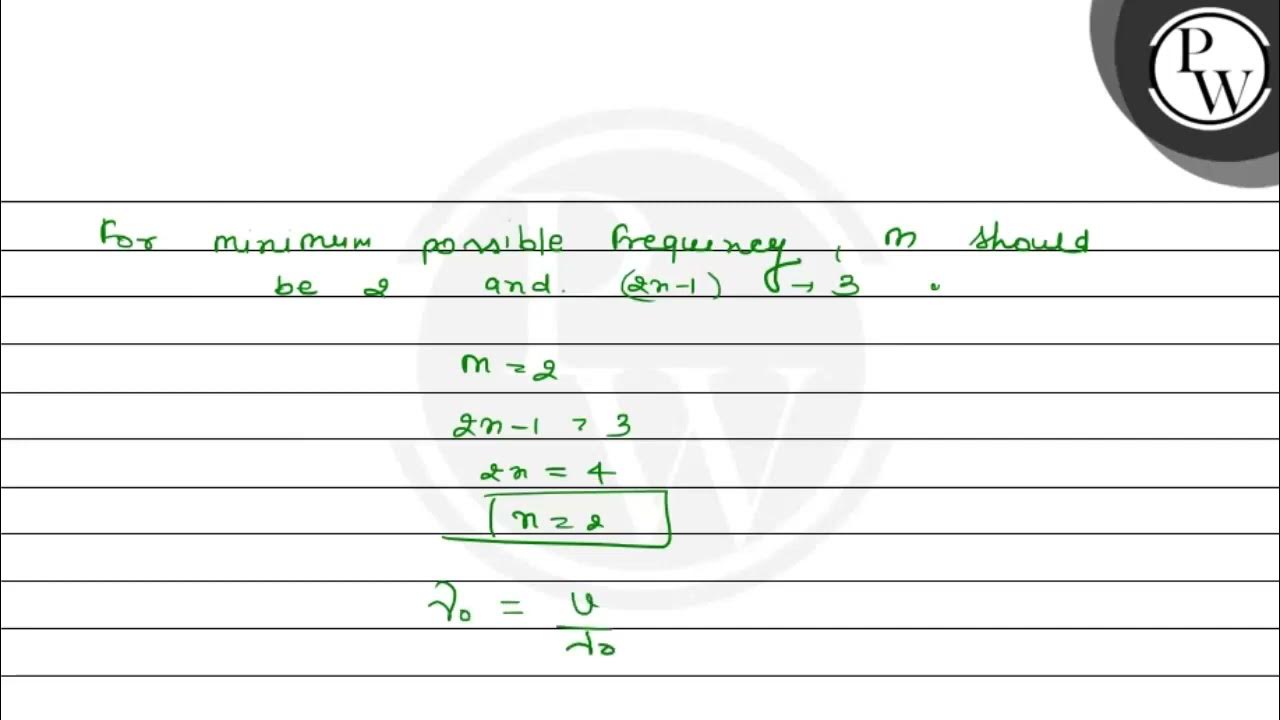 PW
For minimum possible frequency, m should
be 2 and. (2n-1) → 3 .
m = 2
2n-1 = 3
2n = 4
n = 2
ν₀ = v/λ₀